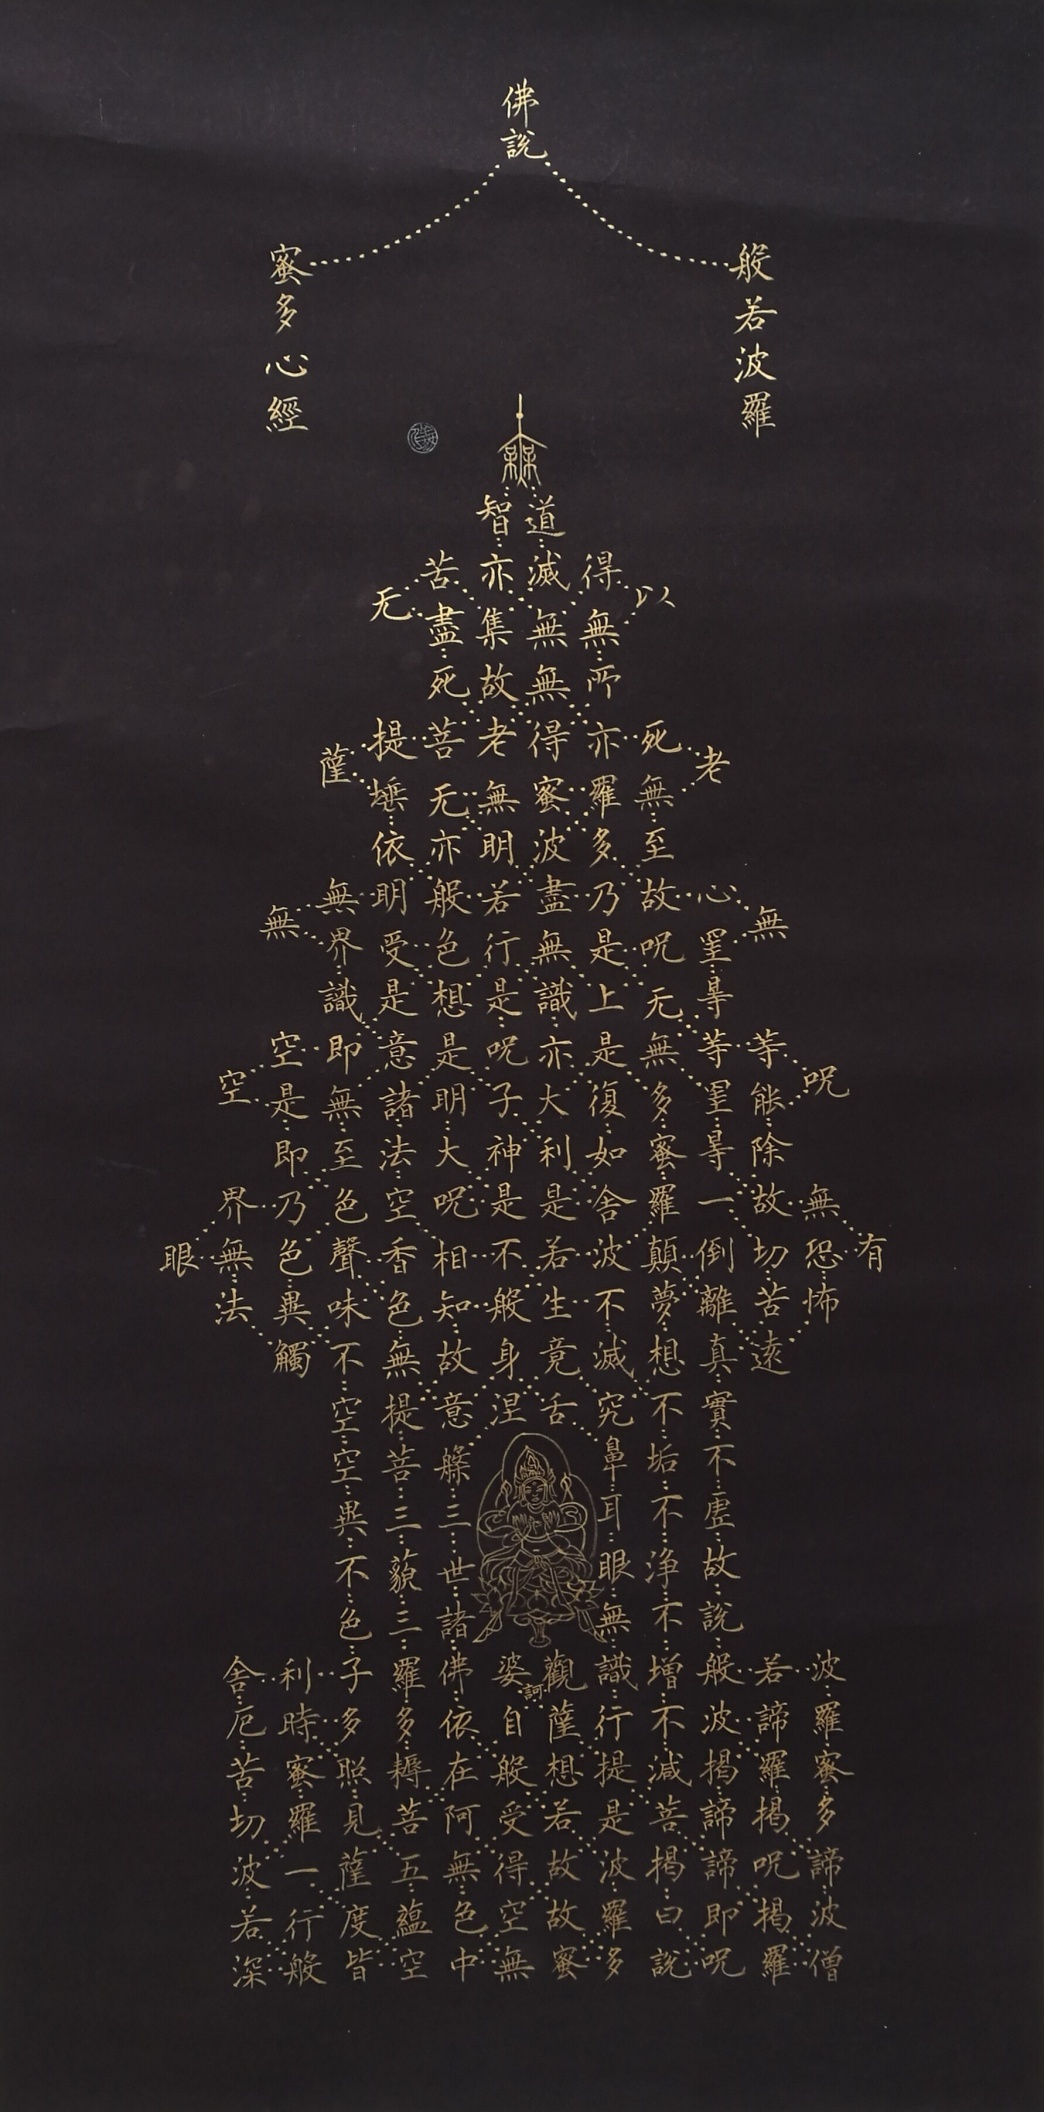 佛說
般若波羅
蜜多心經
智道
苦亦滅得
无以
盡集無無
死故無所
提菩老得亦死
薩老
埵无無蜜羅無
依亦明波多至
無明般若盡乃故心
無無
界受色行無是呪罣
識是想是識上无㝵
空即意是呪亦是無等等
空呪
是無諸明子大復多罣能
即至法大神利如蜜㝵除
界乃色空呪是是舍羅一故無
眼無色聲香相不若波顛倒切恐有
法異味色知般生不夢離苦怖
觸不無故身竟滅想真遠
空提意涅舌究不實
空菩槃鼻垢不
異三三耳不虛
不藐世眼淨故
色三諸無不說
舍利子羅佛婆訶觀識增般若波
厄時多多依自薩行不波諦羅
苦蜜照耨在般想提減揭羅蜜
切羅見菩阿受若是菩諦揭多
波一薩五無得故波揭諦呪諦
若行度蘊色空故羅曰即揭波
深般皆空中無蜜多說呪羅僧